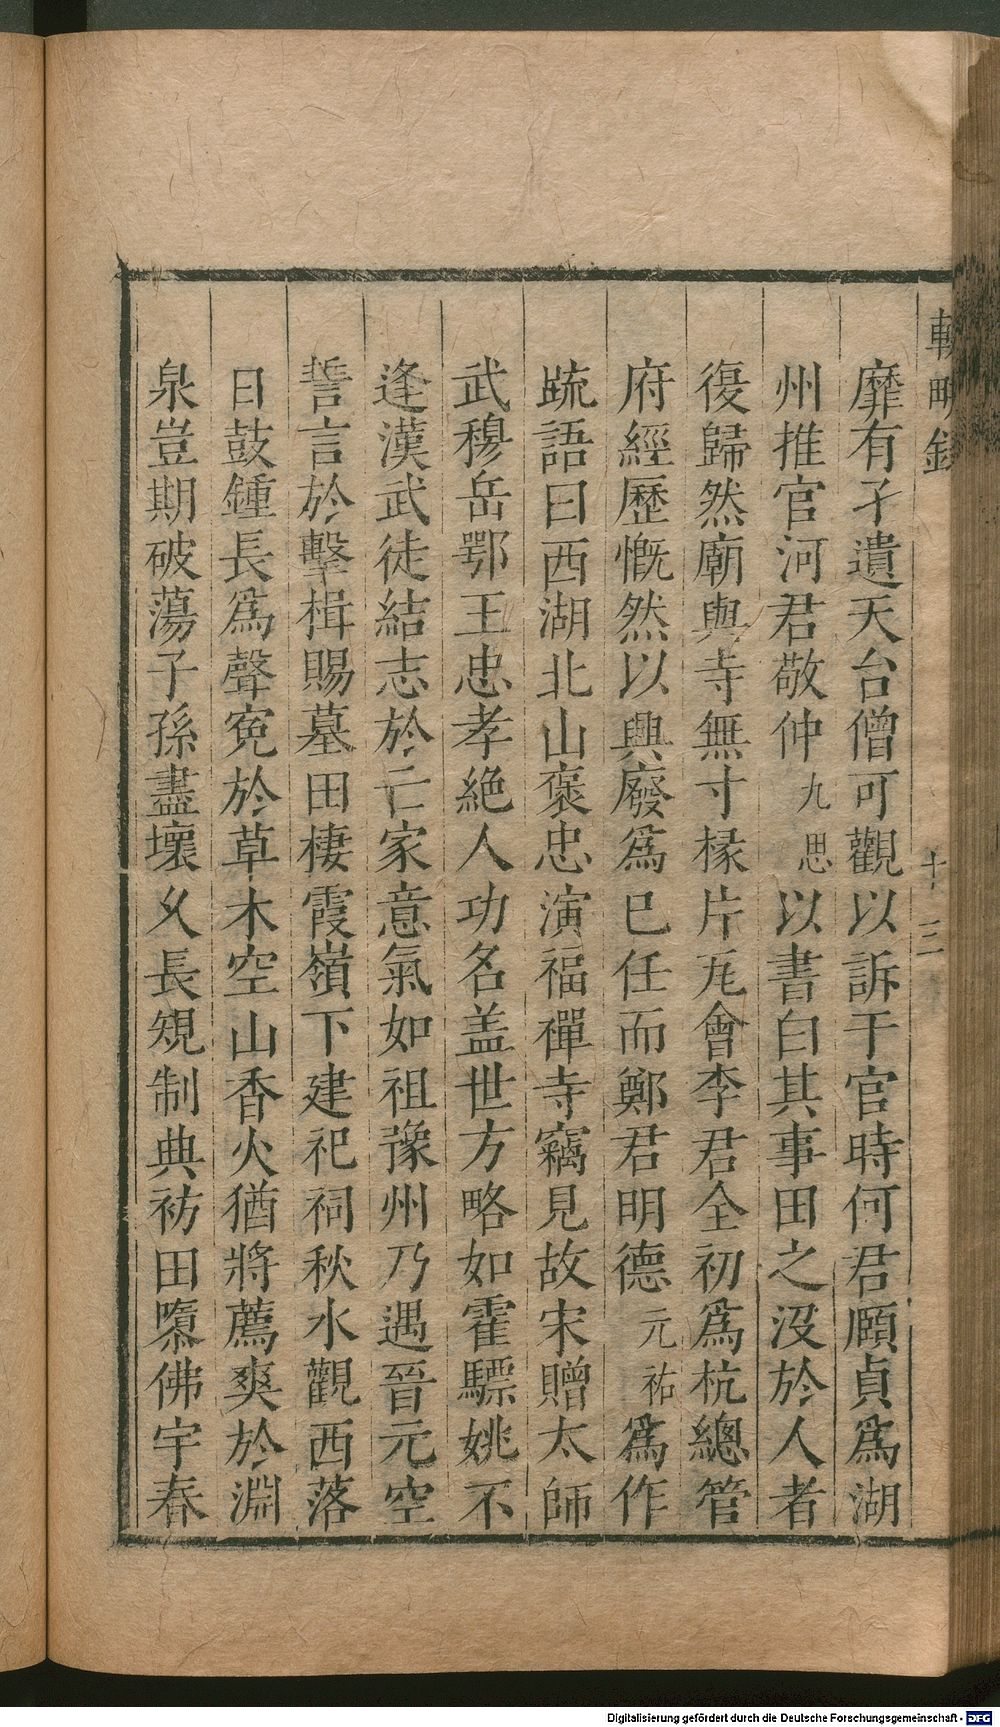 輟畊錄
十三
靡有孑遺天台僧可觀以訴于官時何君頤貞爲湖
州推官河君敬仲九思以書白其事田之沒於人者
復歸然廟與寺無寸椽片瓦會李君全初爲杭總管
府經歷慨然以興廢爲已任而鄭君明德元祐爲作
䟽語曰西湖北山褒忠演福禪寺竊見故宋贈太師
武穆岳鄂王忠孝絶人功名盖世方略如霍驃姚不
逢漢武徒結志於亡家意氣如祖豫州乃遇晉元空
誓言於擊楫賜墓田棲霞嶺下建祀祠秋水觀西落
日鼓鍾長爲聲寃於草木空山香火猶將薦爽於淵
泉豈期破蕩子孫盡壞乆長規制典祊田隳佛宇春
Digitalisierung gefördert durch die Deutsche Forschungsgemeinschaft - DFG